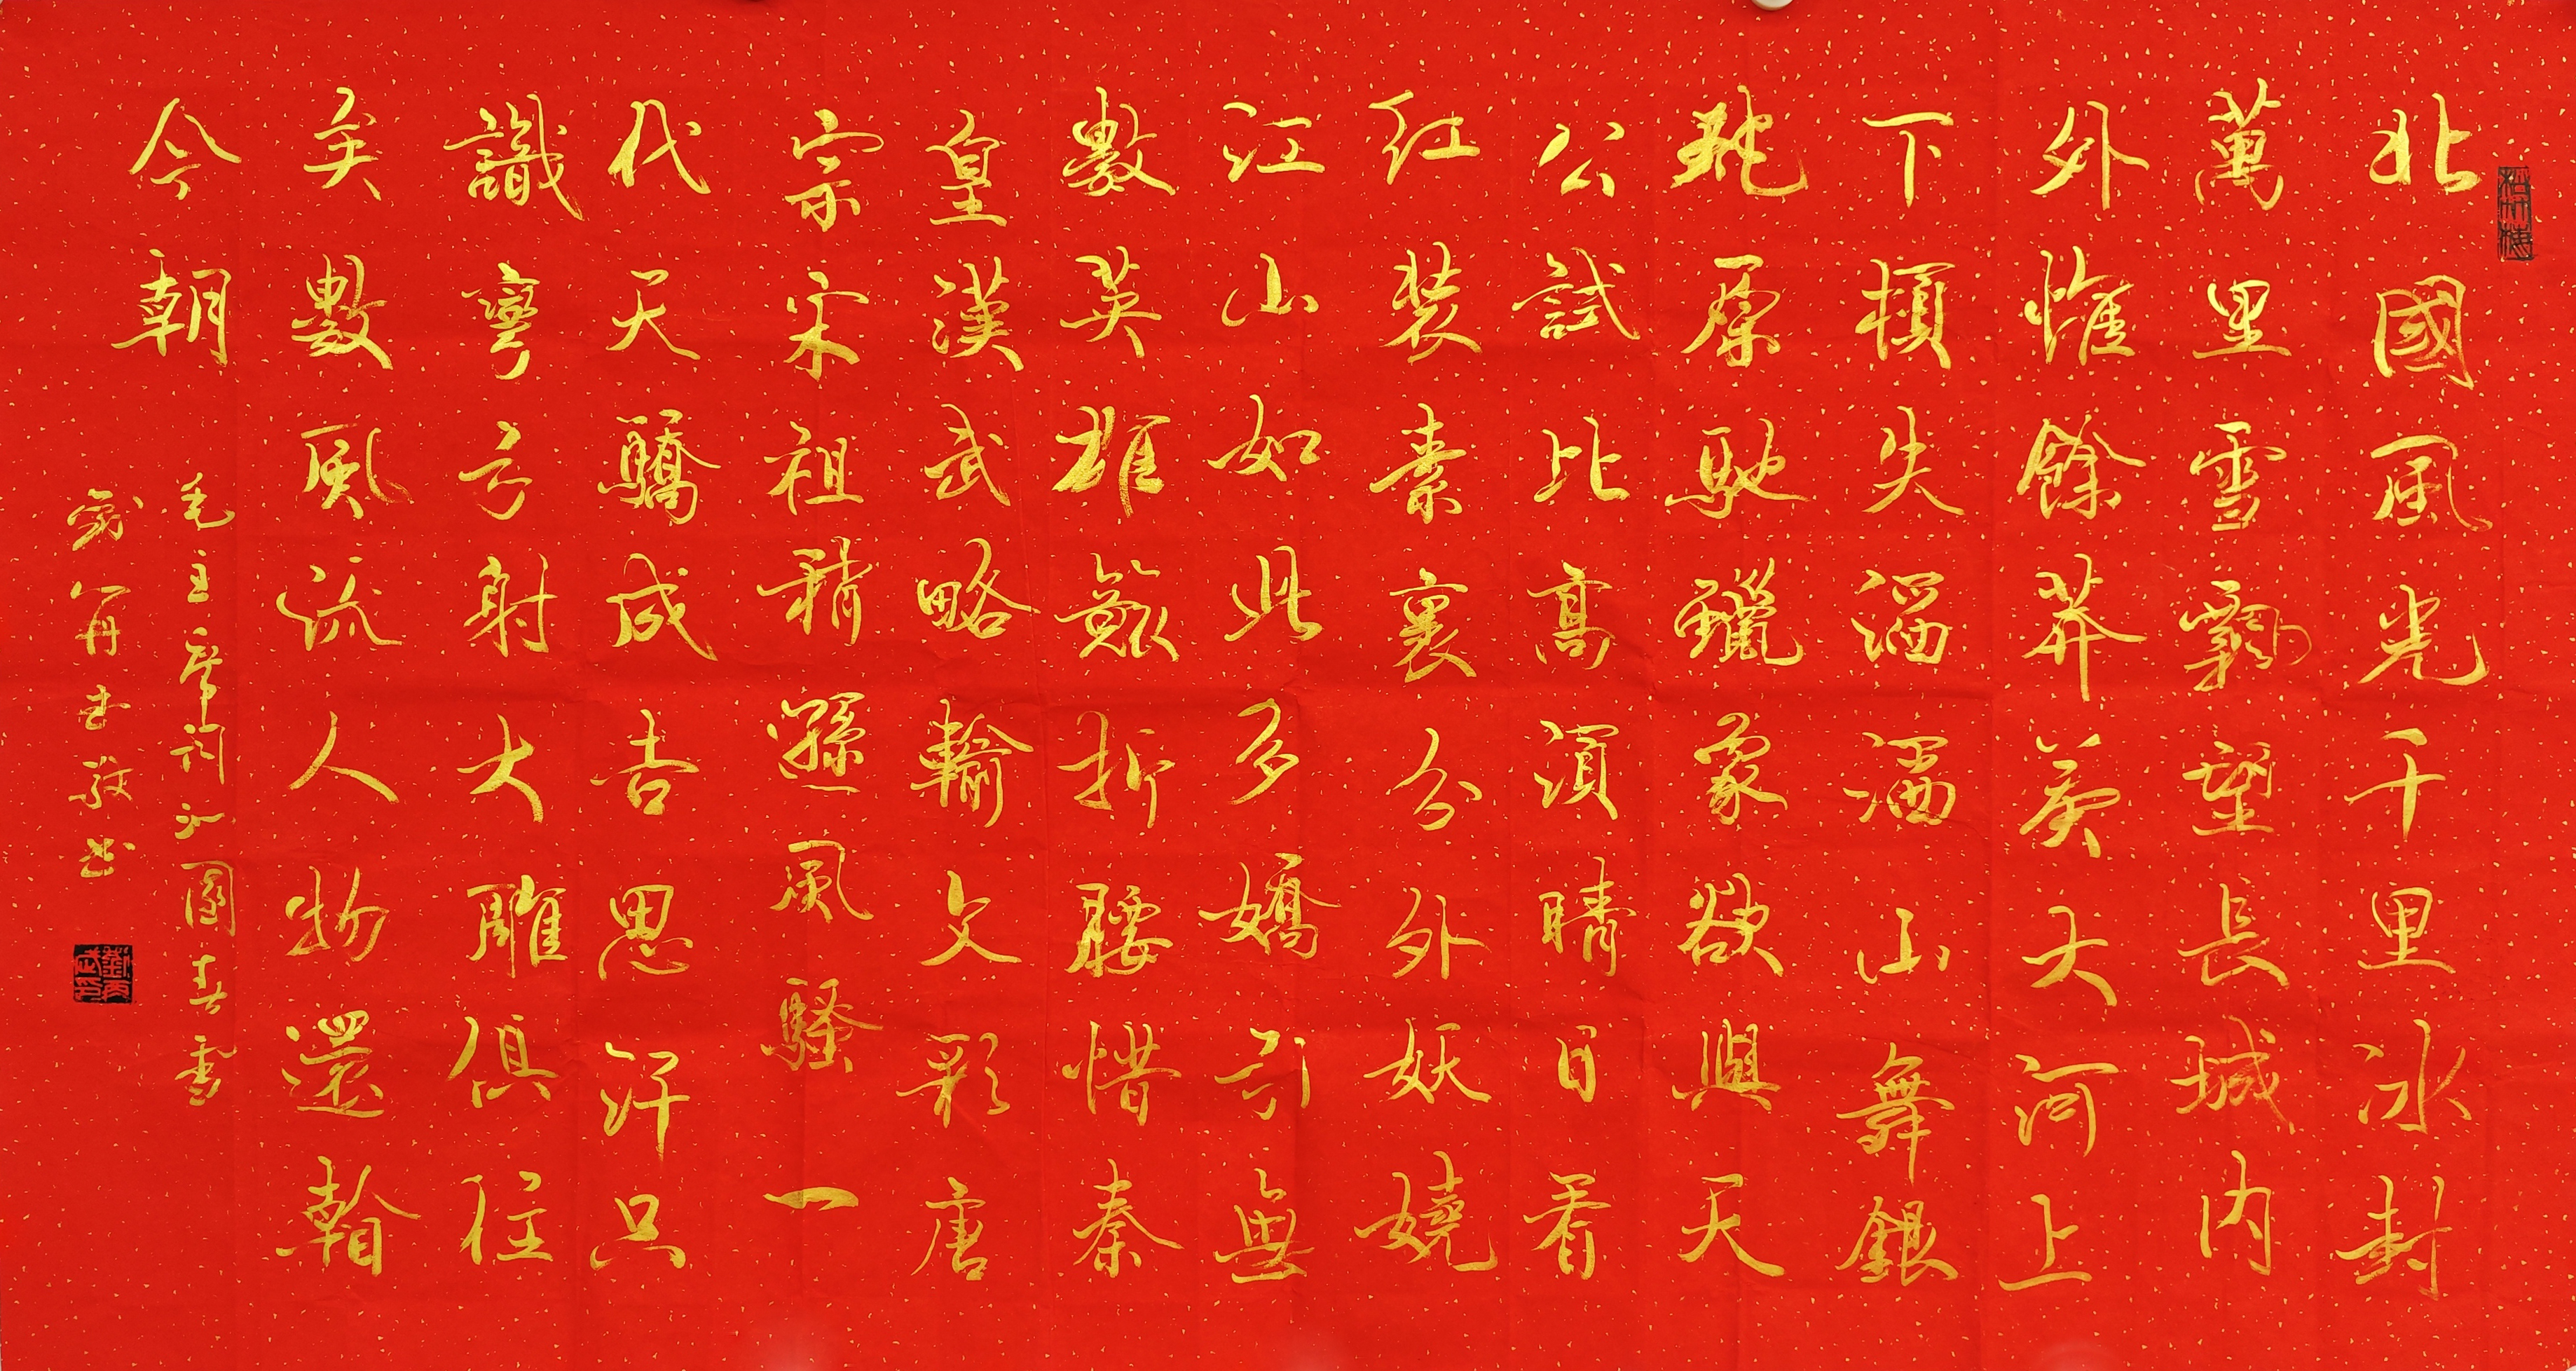 松竹梅
北國風光千里冰封
萬里雪飄望長城内
外惟餘莽莽大河上
下頓失滔滔山舞銀
蛇原馳蠟象欲與天
公試比高須晴日看
紅裝素裹分外妖嬈
江山如此多嬌引無
數英雄競折腰惜秦
皇漢武略輸文彩唐
宗宋祖稍遜風騷一
代天驕成吉思汗只
識彎弓射大雕俱往
矣數風流人物還看
今朝
毛主席詞沁園春雪
劉丙武印